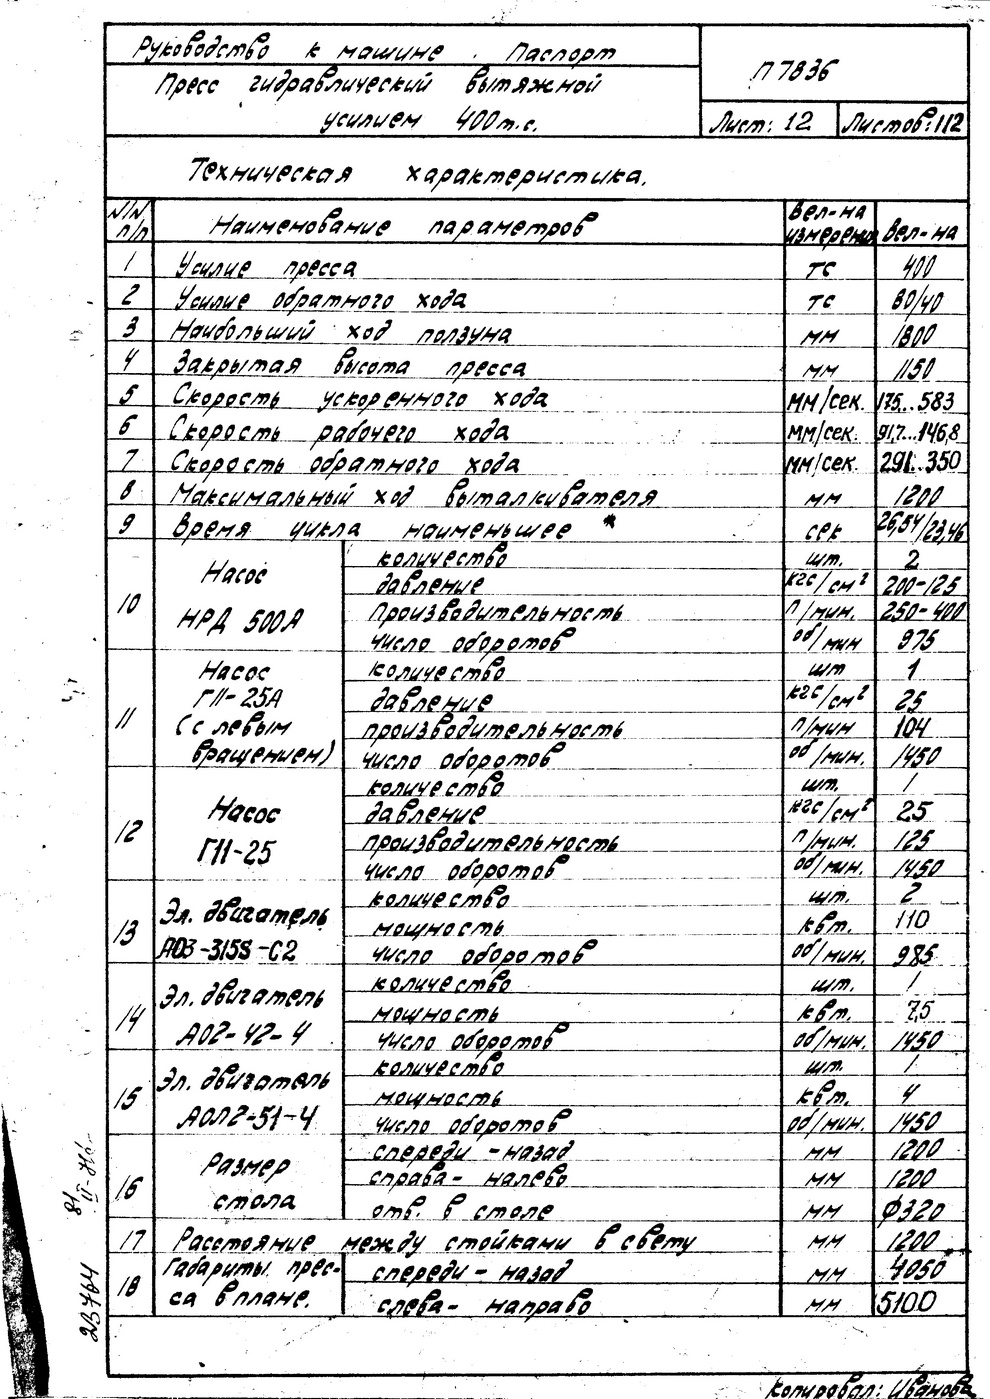 Руководство к машине. Паспорт
Пресс гидравлический вытяжной
усилием 400т.с.
П7836
Лист: 12 Листов: 112
Техническая характеристика.
N/N п/п Наименование параметров Вел-на измерения Вел-на
1 Усилие пресса тс 400
2 Усилие обратного хода тс 80/40
3 Наибольший ход ползуна мм 1800
4 Закрытая высота пресса мм 1150
5 Скорость ускоренного хода мм/сек. 175...583
6 Скорость рабочего хода мм/сек. 91,7...146,8
7 Скорость обратного хода мм/сек. 291...350
8 Максимальный ход выталкивателя мм 1200
9 Время цикла наименьшее * сек 26,54/23,46
10 Насос НРД 500А
количество шт. 2
давление кгс/см² 200-125
производительность л/мин. 250-400
число оборотов об/мин 975
11 Насос Г11-25А (с левым вращением)
количество шт 1
давление кгс/см² 25
производительность л/мин 104
число оборотов об/мин. 1450
12 Насос Г11-25
количество шт. 1
давление кгс/см² 25
производительность л/мин. 125
число оборотов об/мин. 1450
13 Эл. двигатель АО3-315S-С2
количество шт. 2
мощность квт. 110
число оборотов об/мин. 985
14 Эл. двигатель АО2-42-4
количество шт. 1
мощность квт. 7,5
число оборотов об/мин. 1450
15 Эл. двигатель АОЛ2-51-4
количество шт. 1
мощность квт. 4
число оборотов об/мин. 1450
16 Размер стола
спереди-назад мм 1200
справа-налево мм 1200
отв. в столе мм Ф320
17 Расстояние между стойками в свету мм 1200
18 Габариты прес-
са в плане.
спереди-назад мм 4050
слева-направо мм 5100
23764
Копировал: Иванова